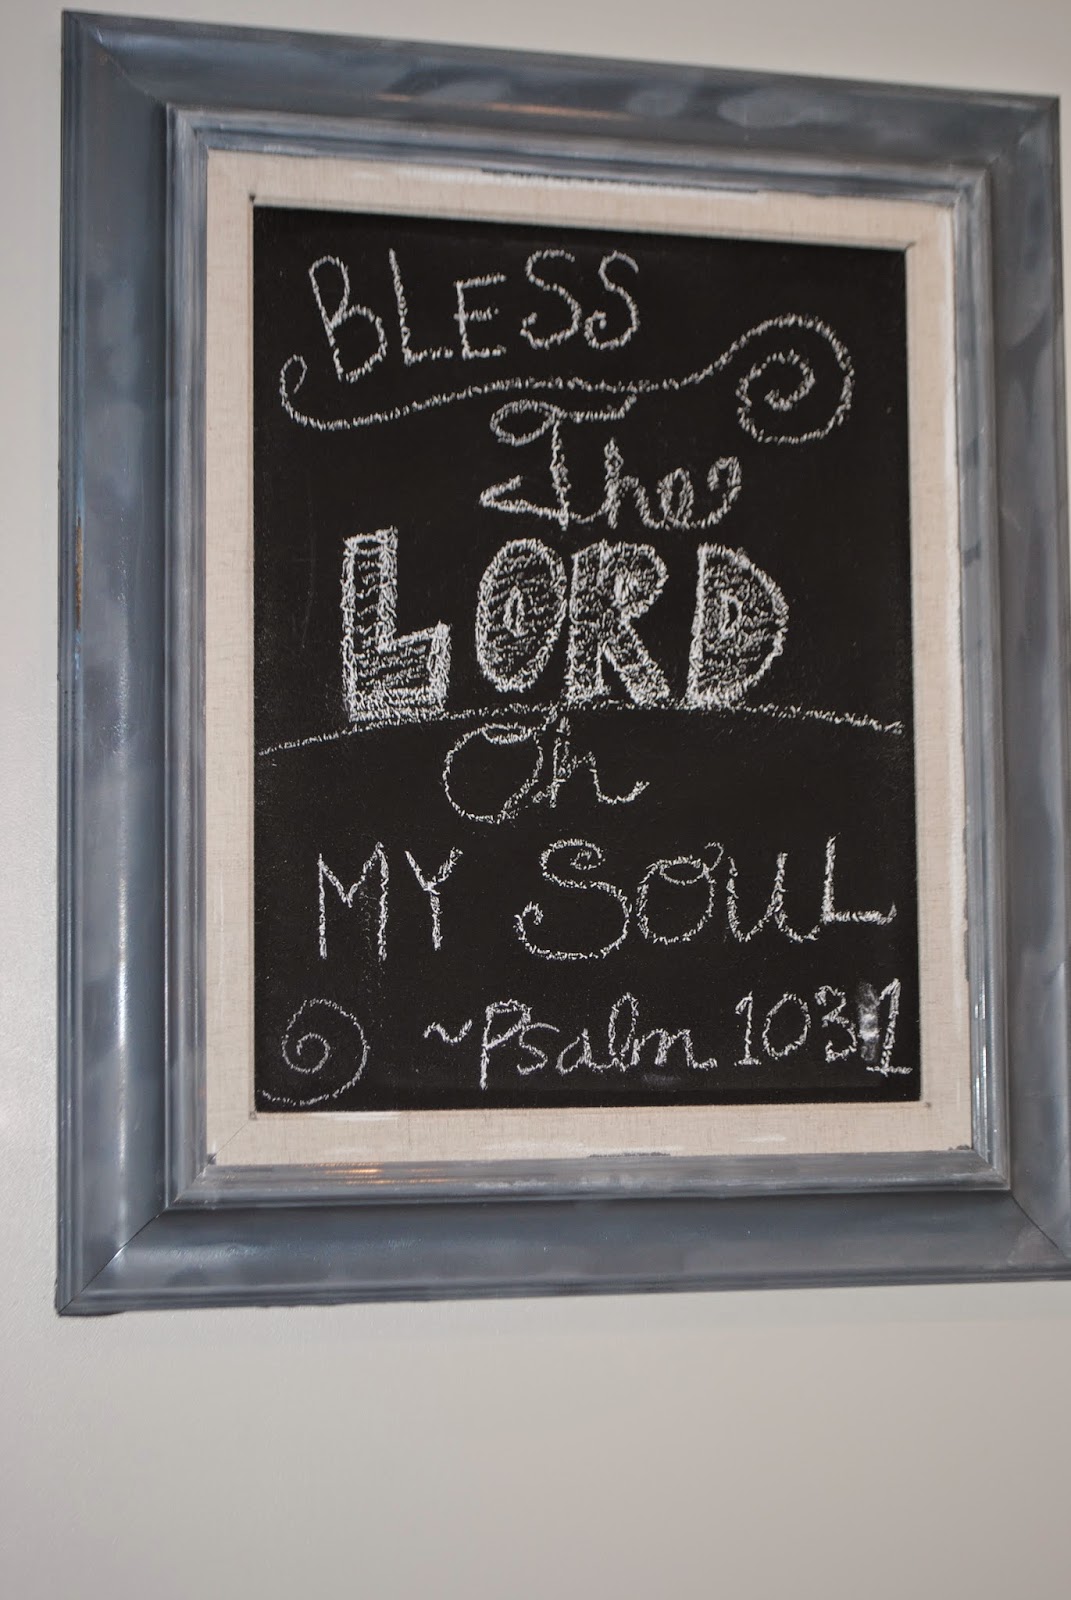 BLESS
The
LORD
Oh
MY SOUL
~Psalm 103:1